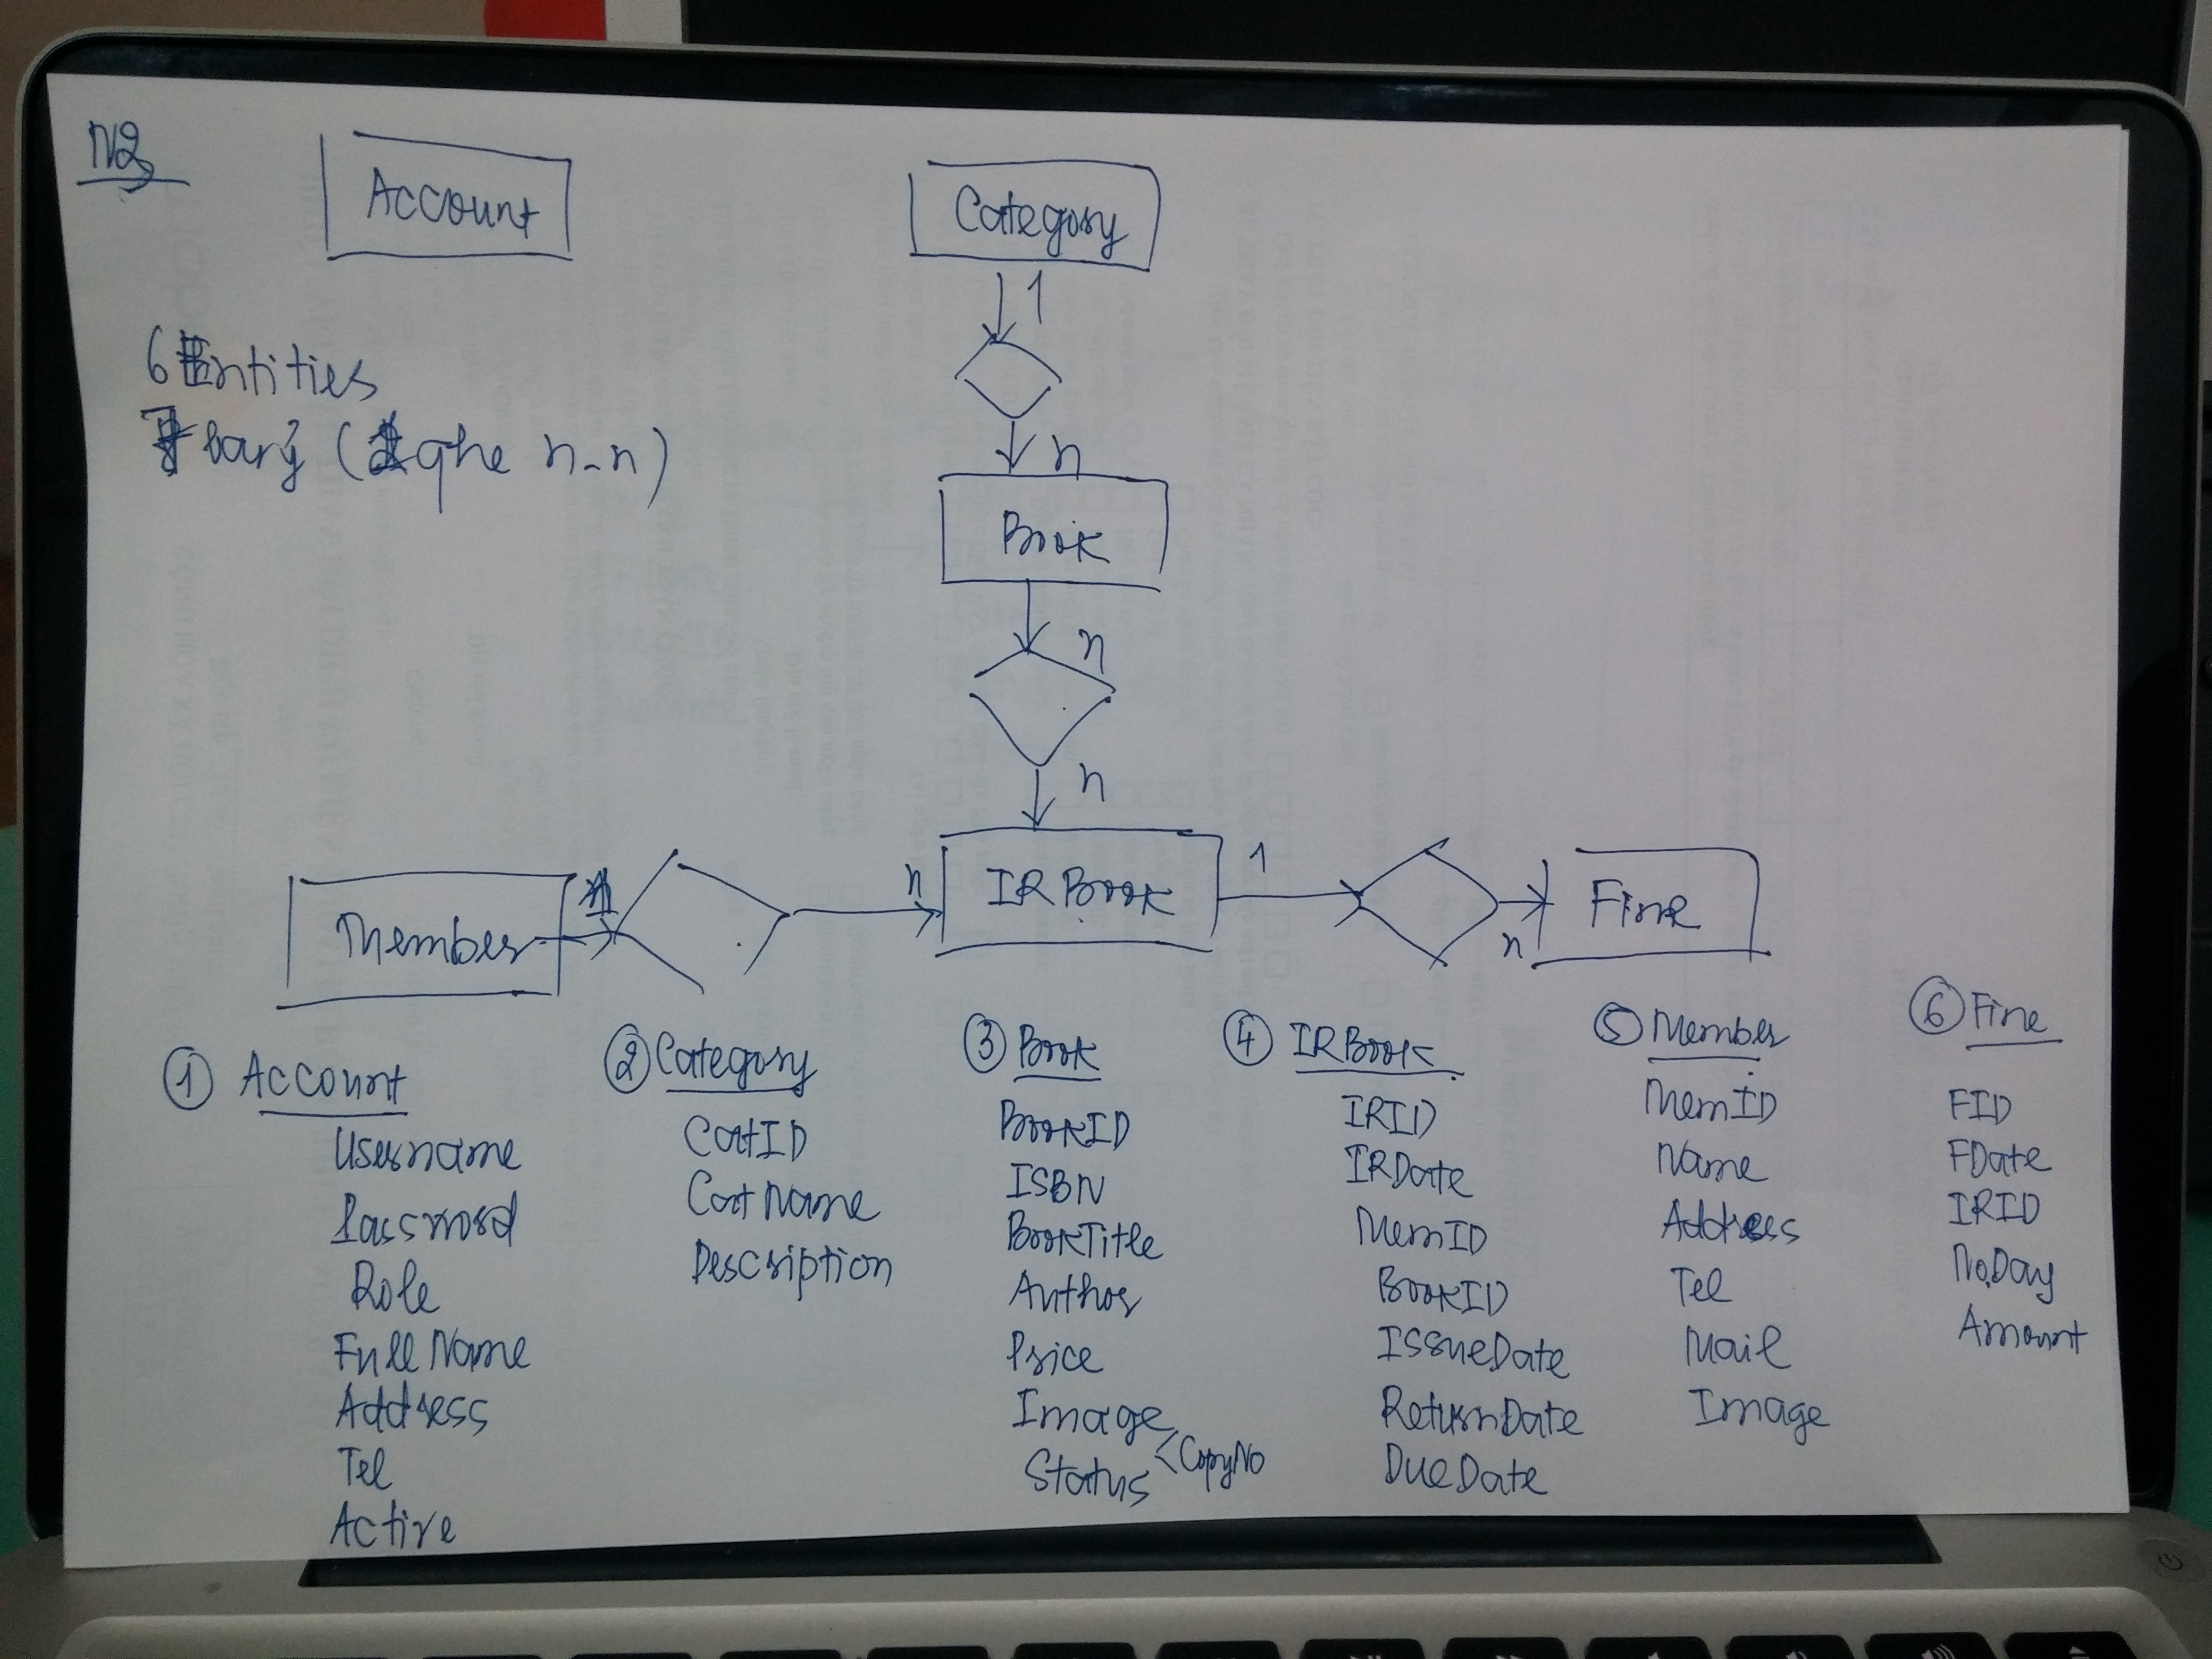 N2
Account
Category
1
6 Entities
n
bảng ( qhe n-n)
Book
n
n
Member
n
IRBook
1
n
Fine
① Account
Username
Password
Role
FullName
Address
Tel
Active
② Category
CatID
CatName
Description
③ Book
BookID
ISBN
BookTitle
Author
Price
Image
Status < CopyNo
④ IRBook
IRID
IRDate
MemID
BookID
IssueDate
ReturnDate
DueDate
⑤ Member
MemID
Name
Address
Tel
Mail
Image
⑥ Fine
FID
FDate
IRID
No.Day
Amount